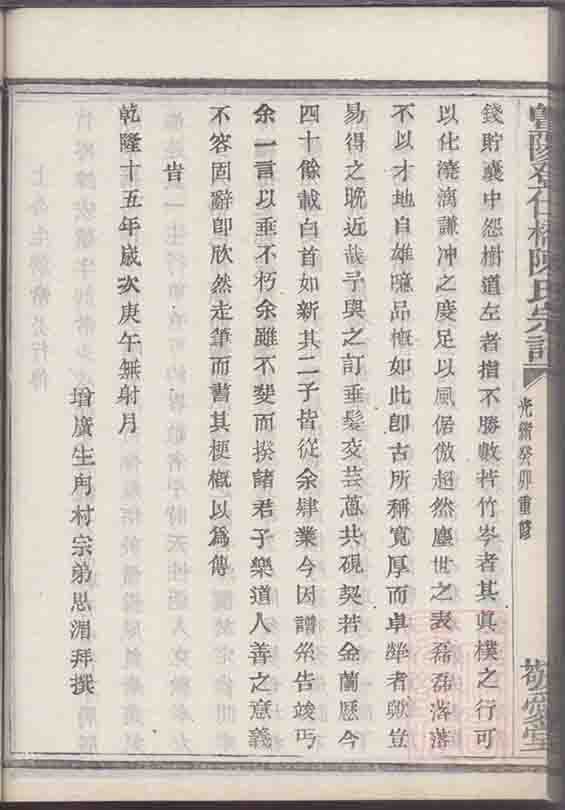 暨陽登仕橋陳氏宗譜
光緒癸卯重修
敬愛堂
錢貯囊中怨樹道左者擢不勝數若竹岑者其真樸之行可
以化澆漓謙冲之度足以風倨傲超然塵世之表磊磊落落
不以才地自雄噫品槪如此卽古所稱寬厚而卓犖者歟豈
易得之晚近哉予與之訂垂髫交芸蕙共硯契若金蘭歷今
四十餘載白首如新其二子皆從余肄業今因譜㡳告竣丐
余一言以垂不朽余雖不斐而揆諸君子樂道人善之意義
不容固辭卽欣然走筆而書其梗槪以爲傳
旹
乾隆十五年歲次庚午無射月
增廣生
村宗弟思湄拜撰